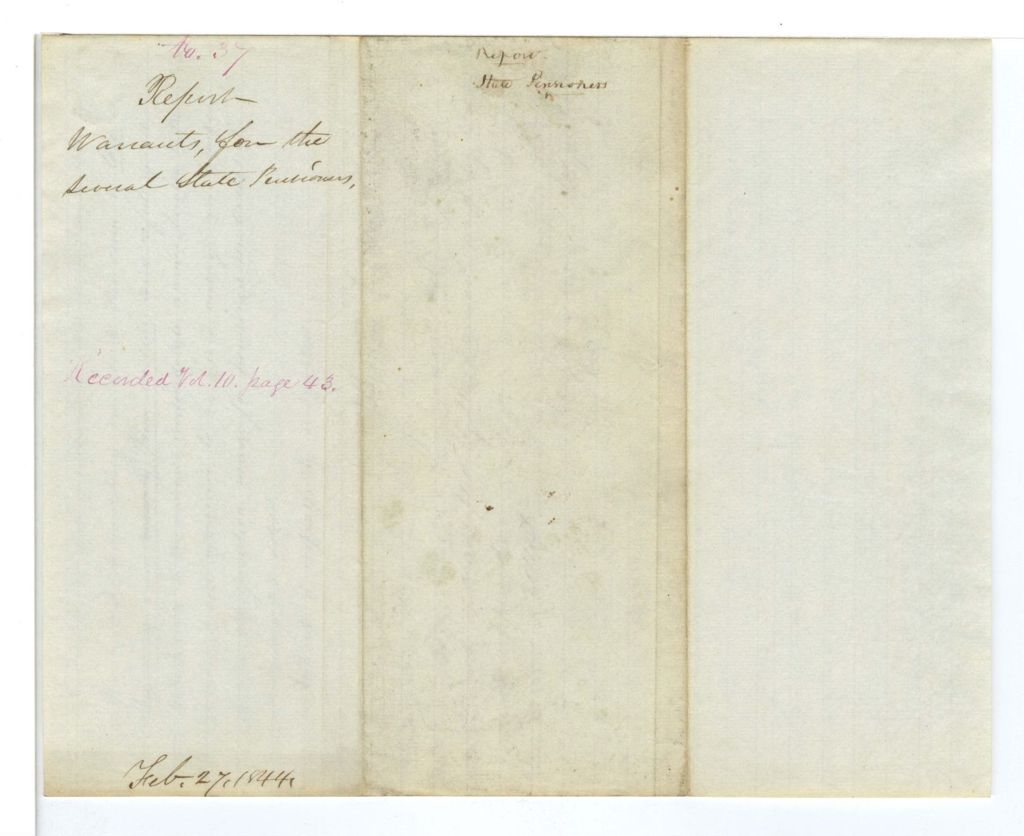 No. 37
Report
Warrants, for the
several State Pensioners,
Recorded Vol. 10. page 43.
Feb. 27, 1844.
Report
State Pensioners